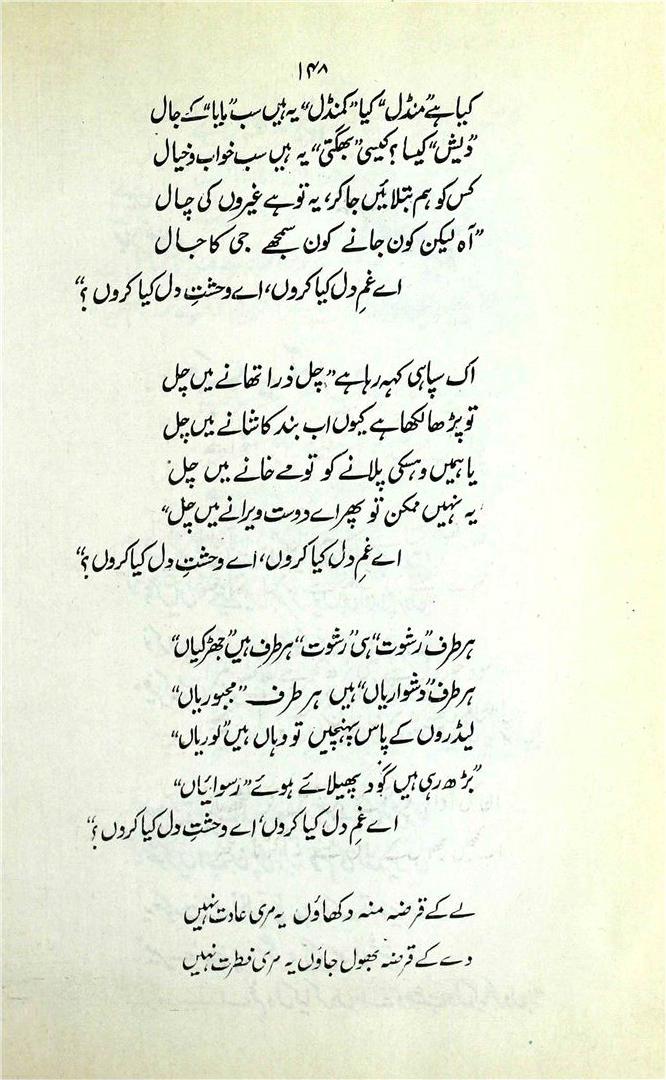 ۱۴۸
کیا ہے ”منڈل“ کیا ”کمنڈل“ یہ ہیں سب ”مایا“ کے جال
”دیش“ کیسا؟ کیسی ”بھگتی“ یہ ہیں سب خواب و خیال
کس کو ہم بتلائیں جا کر، یہ تو ہے غیروں کی چال
”آہ لیکن کون جانے کون سمجھے جی کا حال
اے غمِ دل کیا کروں، اے وحشتِ دل کیا کروں؟“
اک سپاہی کہہ رہا ہے ”چل ذرا تھانے میں چل
تو پڑھا لکھا ہے کیوں اب بند کا شانے میں چل
یا ہمیں وہسکی پلانے کو تو مے خانے میں چل
یہ نہیں ممکن تو پھر اے دوست ویرانے میں چل“
اے غمِ دل کیا کروں، اے وحشتِ دل کیا کروں؟“
ہر طرف ”رشوت“ ہی ”رشوت“ ہر طرف ہیں ”جھڑکیاں“
ہر طرف ”دشواریاں“ ہیں ہر طرف ”مجبوریاں“
لیڈروں کے پاس پہنچیں تو وہاں ہیں ”لوریاں“
”بڑھ رہی ہیں گود پھیلائے ہوئے ”رسوائیاں“
اے غمِ دل کیا کروں، اے وحشتِ دل کیا کروں؟“
لے کے قرضہ منہ دکھاؤں یہ مری عادت نہیں
دے کے قرضہ بھول جاؤں یہ مری فطرت نہیں